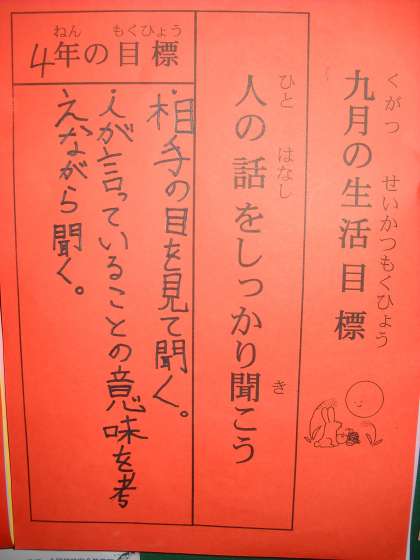 九月の生活目標
くがつ せいかつもくひょう
人の話をしっかり聞こう
ひと はなし き
4年の目標
ねん もくひょう
・相手の目を見て聞く。
・人が言っていることの意味を考
えながら聞く。